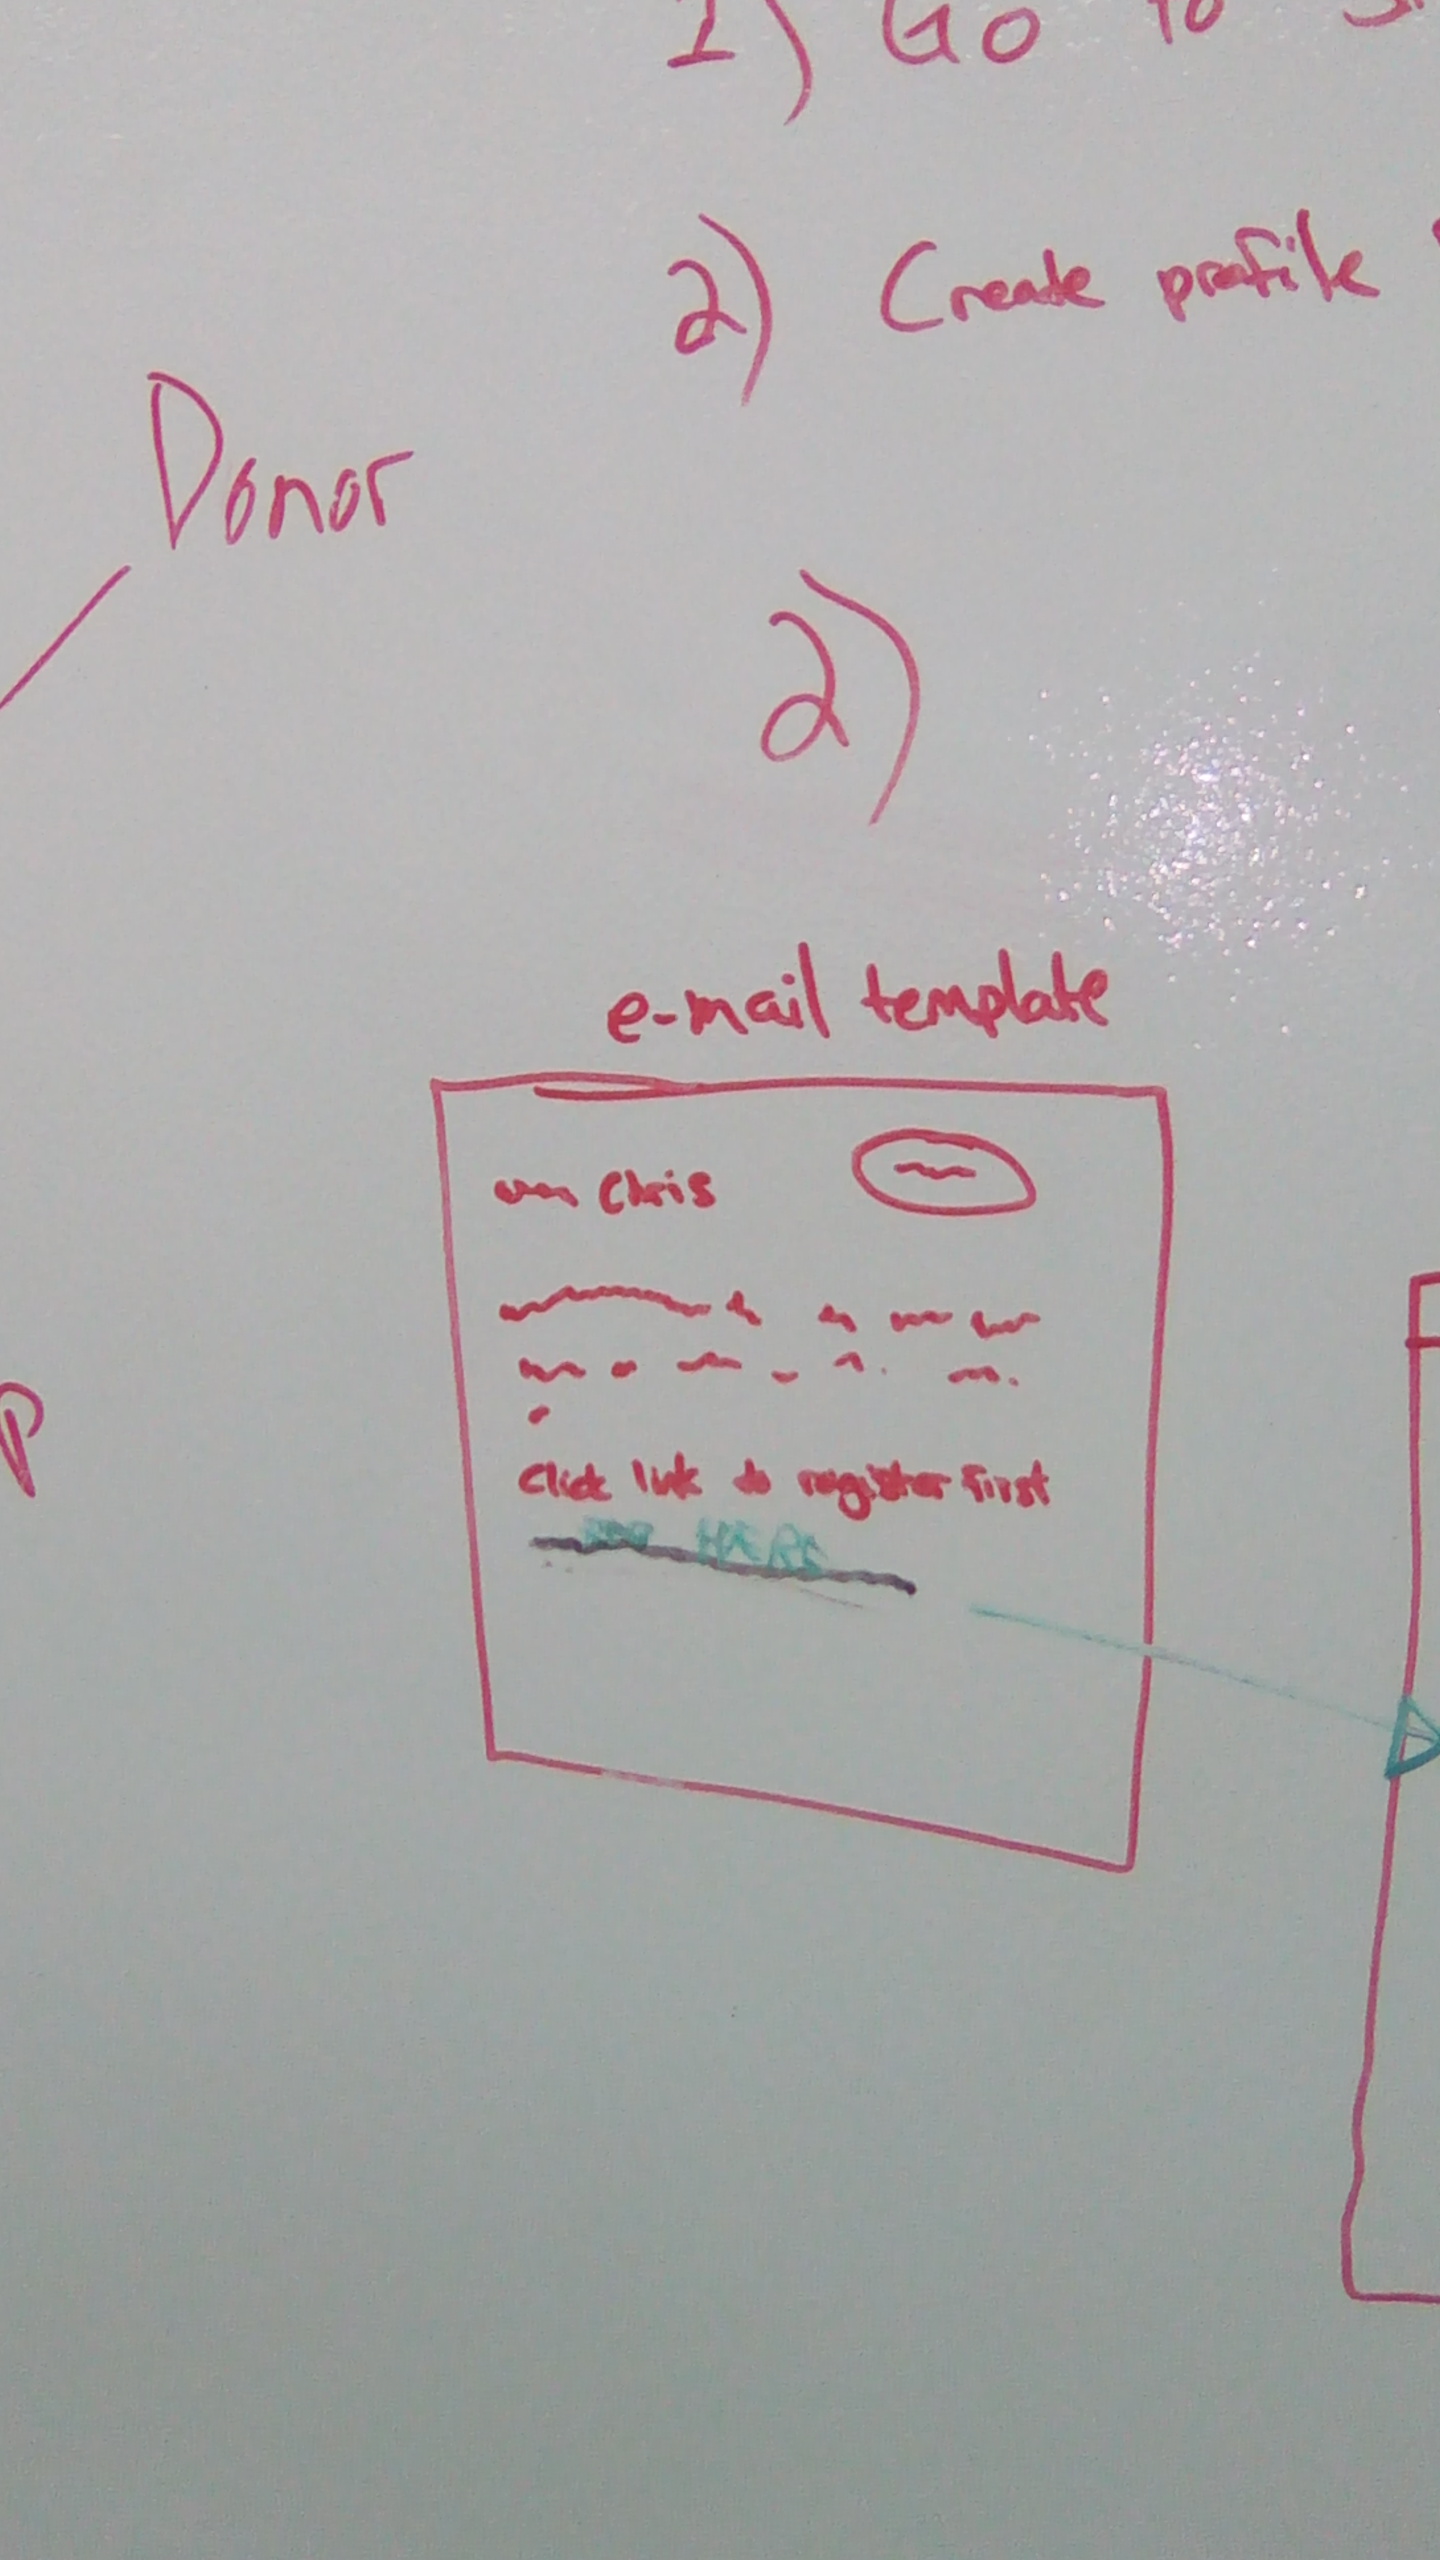 1) Go to
2) Create profile
Donor
2)
e-mail template
Chris
P
Click link to register first
HERE